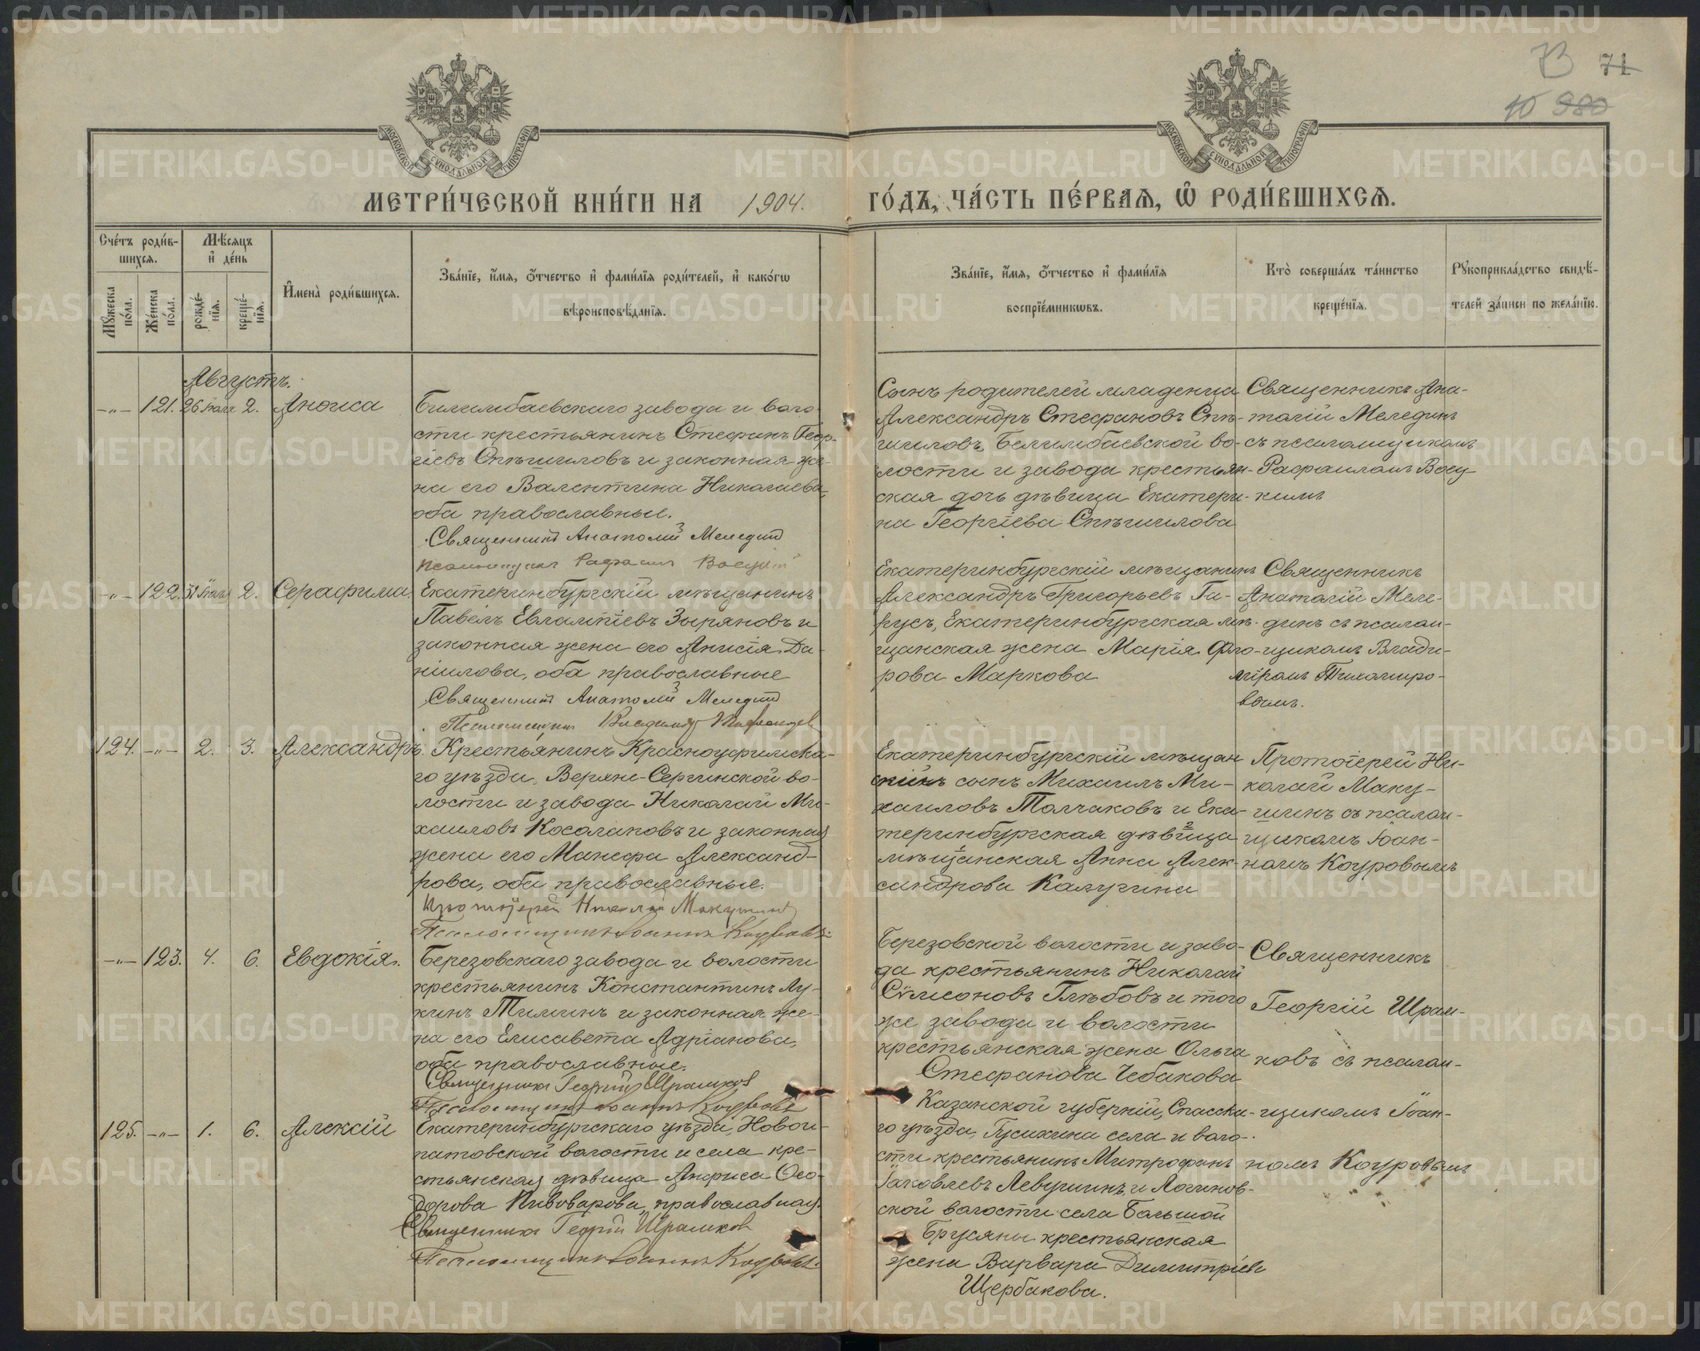 73 71
10 980
МОСКОВСКОЙ СѴНОДАЛЬНОЙ ТИПОГРАФІИ
МОСКОВСКОЙ СѴНОДАЛЬНОЙ ТИПОГРАФІИ
МЕТРИ́ЧЕСКОЙ КНИ́ГИ НА 1904. ГО́ДЪ, ЧА́СТЬ ПЕ́РВАѦ, Ѡ҆ РОДИ́ВШИХСѦ.
Сче́тъ роди́в-
шихсѧ.
Мѣ́сѧцъ
и҆ де́нь
Мꙋ́жеска по́ла.
Же́нска по́ла.
рожде́-
нїѧ.
креще́-
нїѧ.
И҆мена̀ роди́вшихсѧ.
Зва́нїе, и҆́мѧ, ѻ҆́тчество и҆ фами́лїѧ роди́телей, и҆ како́гѡ
вѣроисповѣ́данїѧ.
Зва́нїе, и҆́мѧ, ѻ҆́тчество и҆ фами́лїѧ
воспрїе́мникѡвъ.
Кто̀ соверша́лъ та́инство
креще́нїѧ.
Рꙋкоприкла́дство свидѣ́-
телей за́писи по жела́нїю.
Августъ.
-„- 121. 26 Іюля 2. Анѳиса
Билимбаевскаго завода и воло-
сти крестьянинъ Стефанъ Геор-
гіевъ Спѣшиловъ и законная же-
на его Валентина Николаева,
оба православные.
Священникъ Анатолій Меледин
Псаломщикъ Рафаилъ
Сынъ родителей младенца
Александръ Стефановъ Спѣ-
шиловъ, Белимбаевской во-
лости и завода крестьян-
ская дочь дѣвица Екатери-
на Георгіева Спѣшилова
Священникъ Ана-
толій Мелединъ
съ псаломщикомъ
Рафаиломъ
кимъ
-„- 122. 2. Серафима.
Екатеринбургскій мѣщанинъ
Павелъ Евлампіевъ Зыряновъ и
законная жена его Анисія Да-
ніилова, оба православные
Священникъ Анатолій Меледин
Псаломщикъ Владиміръ Тихомировъ
Екатеринбургскій мѣщанинъ
Александръ Григорьевъ Га-
русъ, Екатеринбургская мѣ-
щанская жена Марія Фло-
рова Маркова
Священникъ
Анатолій Меле-
динъ съ псалом-
щикомъ Влади-
міромъ Тихомиро-
вымъ.
124. -„- 2. 3. Александръ.
Крестьянинъ Красноуфимска-
го уѣзда, Верхне-Сергинской во-
лости и завода Николай Ми-
хаиловъ Косолаповъ и законная
жена его Манефа Александ-
рова, оба православные.
Протоіерей Николай Макушинъ
Псаломщикъ Іоаннъ Коуровъ
Екатеринбургскій мѣщан
скій сынъ Михаилъ Ми-
хаиловъ Толчаковъ и Ека-
теринбургская дѣвица
мѣщанская Анна Алек-
сандрова Калугина
Протоіерей Ни-
колай Маку-
шинъ съ псалом-
щикомъ Іоан-
номъ Коуровымъ
-„- 123. 4. 6. Евдокія.
Березовскаго завода и волости
крестьянинъ Константинъ Лу-
кинъ Тиминъ и законная же-
на его Елисавета Адріанова,
оба православные.
Священникъ Георгій Шрамковъ
Псаломщикъ Іоаннъ Коуровъ
Березовской волости и заво-
да крестьянинъ Николай
Сѵмеоновъ Глѣбовъ и того
же завода и волости
крестьянская жена Ольга
Стефанова Чебакова
Священникъ
Георгій Шрам-
ковъ съ псалом-
щикомъ Іоан-
номъ Коуровымъ
125. -„- 1. 6. Алексій
Екатеринбургскаго уѣзда, Новои-
патовской волости и села кре-
стьянская дѣвица Анфиса Ѳео-
дорова Пивоварова, православная.
Священникъ Георгій Шрамковъ
Псаломщикъ Іоаннъ Коуровъ.
Казанской губерніи, Спасска-
го уѣзда, Гусихина села и воло-
сти крестьянинъ Митрофанъ
Іаковлевъ Левушинъ и Логинов-
ской волости села Большой
Брусяны крестьянская
жена Варвара Димитріев
Щербакова.